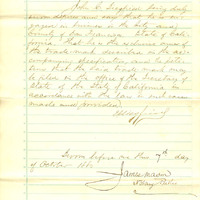 John D. Siegfried being duly
sworn deposes and says that he is en-
gaged in business in the City and
County of San Francisco State of Cali-
fornia that he is the exclusive owner of
the trade mark described in the ac-
companying specification and
that the said trade mark may
be placed in the office of the Secretary
of State of the State of California in
accordance with the law in such cases
made and provided.
Sworn before me this 7th day
of October 188
James Mason
Notary Public